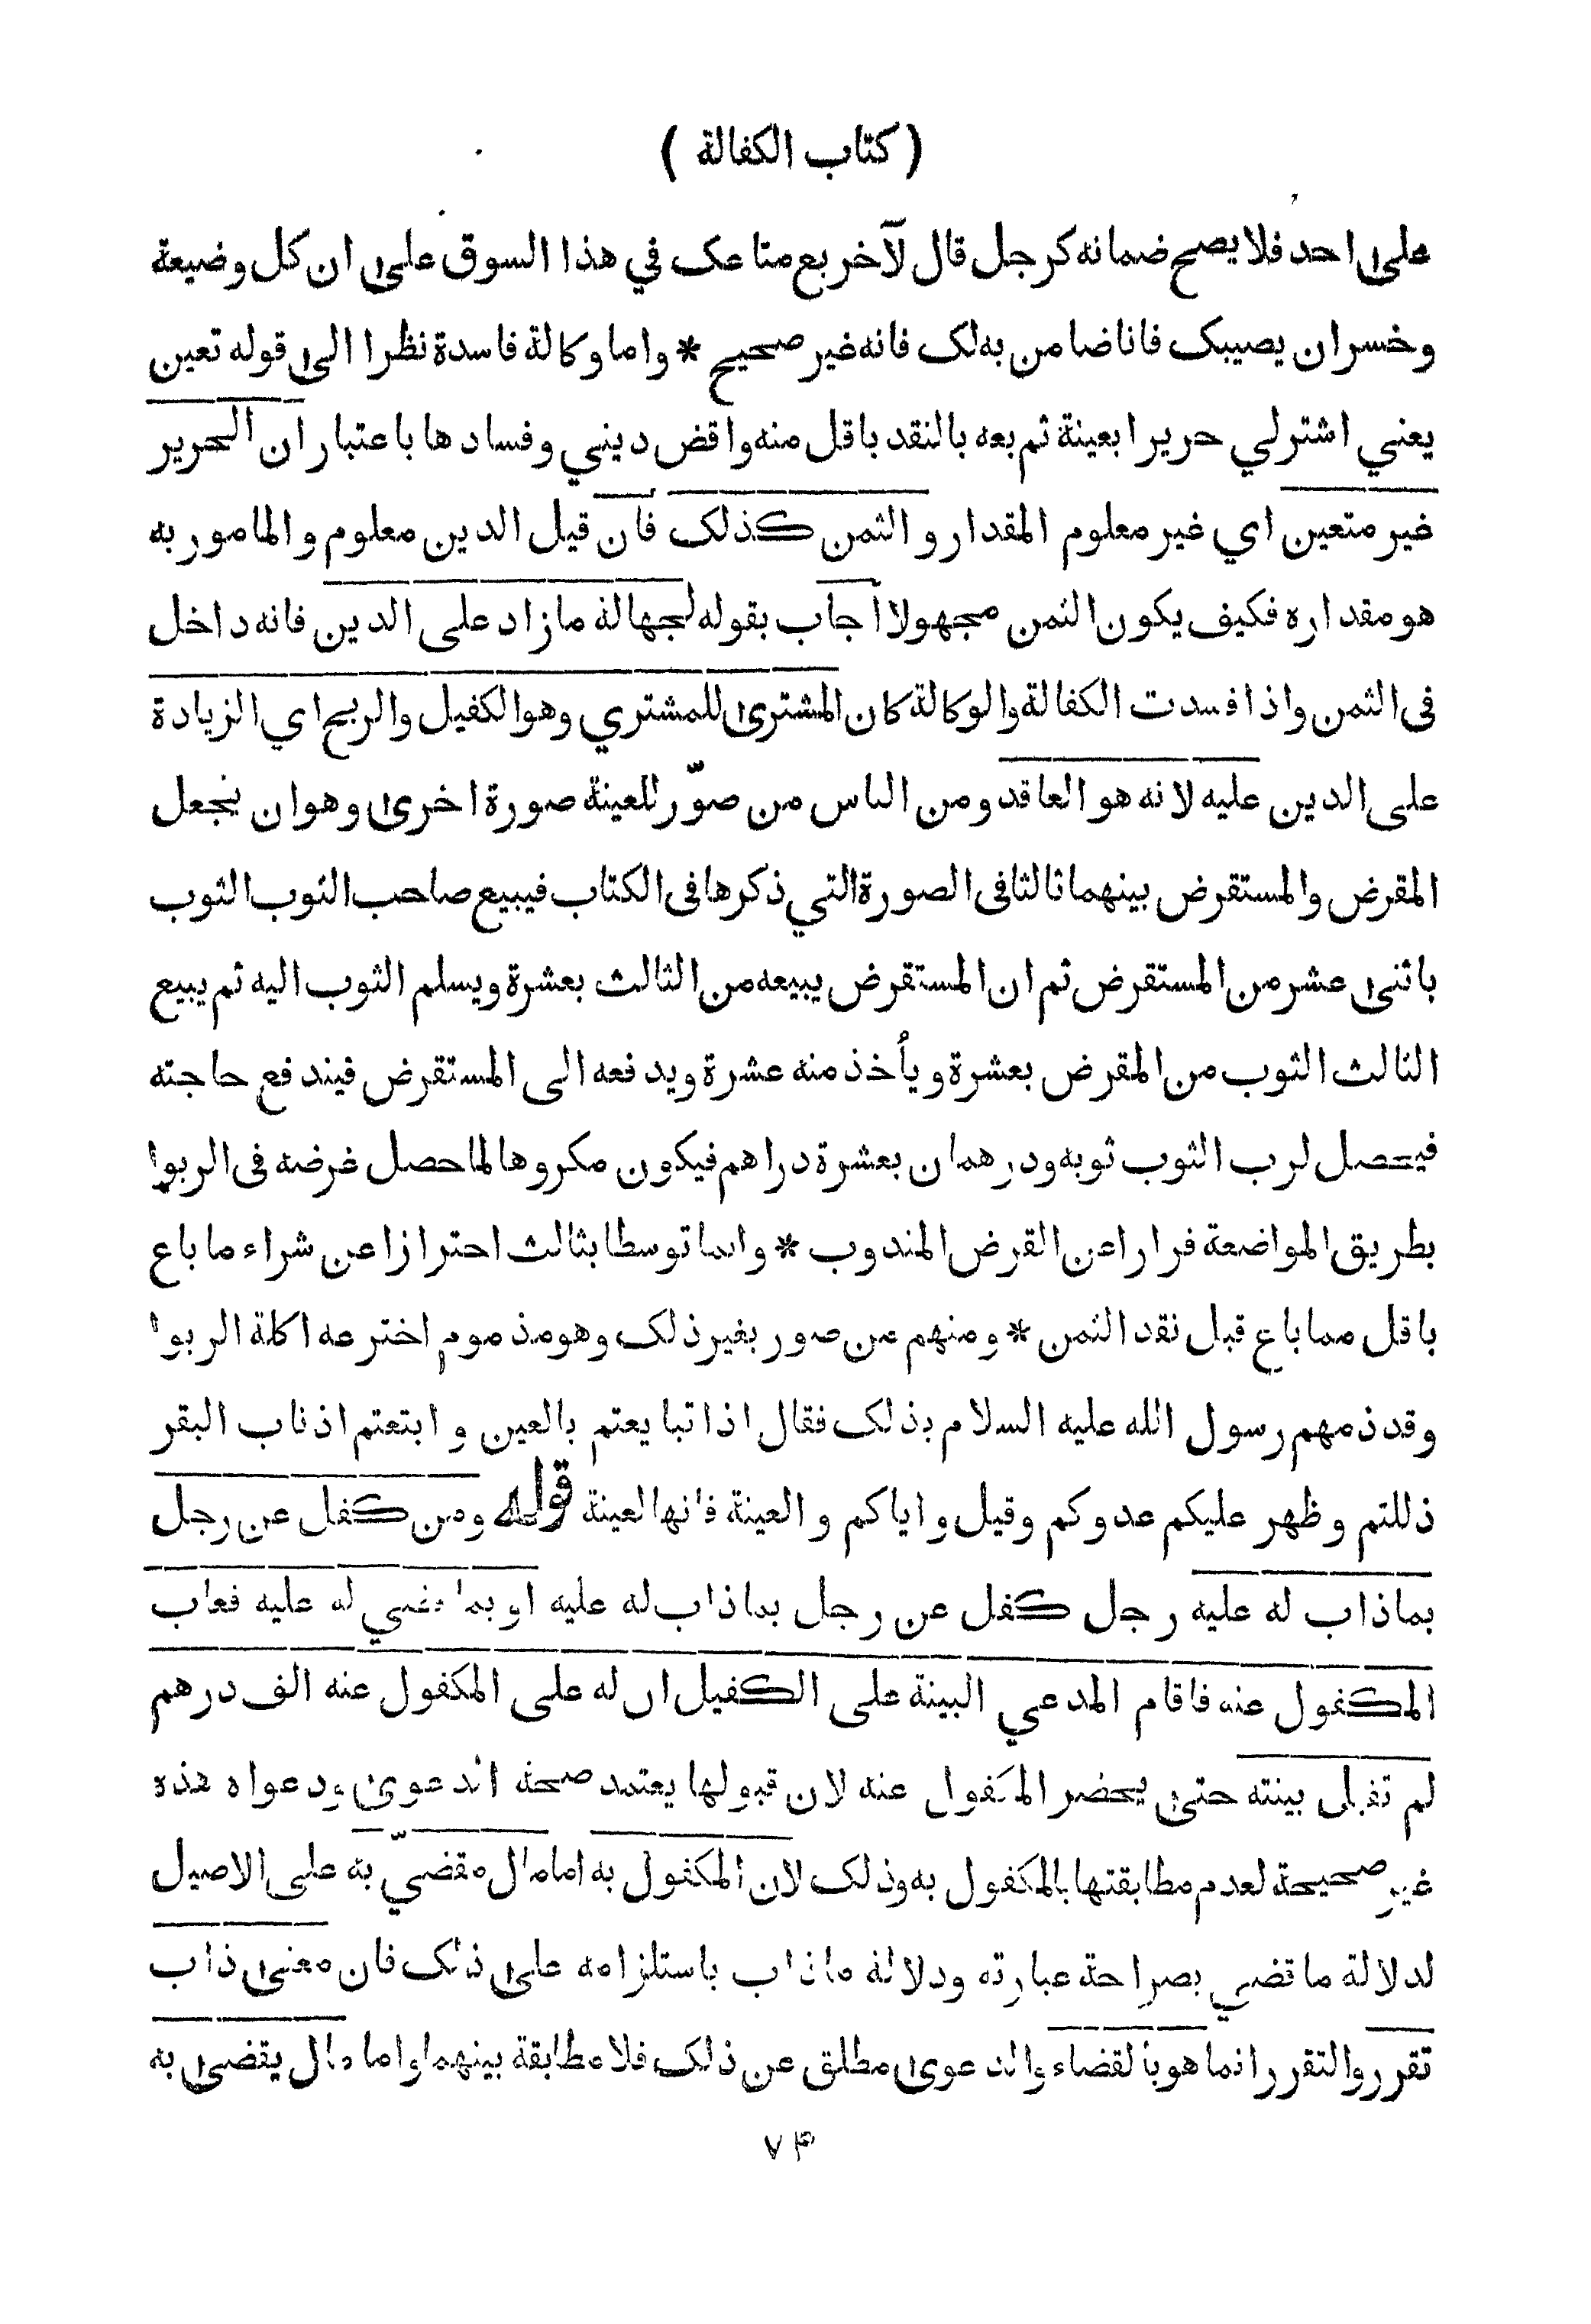 ( كتاب الكفالة )
على احد فلا يصح ضمانه كرجل قال لآخر بع متاعك في هذا السوق على ان كل وضيعة
وخسران يصيبك فانا ضامن به لك فانه غير صحيح * واما وكالة فاسدة نظرا الى قوله تعين
يعني اشترلي حريرا بعينة ثم بعه بالنقد باقل منه واقض ديني وفسادها باعتبار ان الحرير
غير متعين اي غير معلوم المقدار و الثمن كذلك فان قيل الدين معلوم و المامور به
هو مقداره فكيف يكون الثمن مجهولا أجاب بقوله لجهالة ما زاد على الدين فانه داخل
فى الثمن واذا فسدت الكفالة والوكالة كان المشترى للمشتري وهو الكفيل والربح اي الزيادة
على الدين عليه لانه هو العاقد ومن الناس من صوّر للعينة صورة اخرى وهو ان يجعل
المقرض والمستقرض بينهما ثالثا فى الصورة التي ذكرها فى الكتاب فيبيع صاحب الثوب الثوب
باثنى عشر من المستقرض ثم ان المستقرض يبيعه من الثالث بعشرة ويسلم الثوب اليه ثم يبيع
الثالث الثوب من المقرض بعشرة ويأخذ منه عشرة ويدفعه الى المستقرض فيندفع حاجته
فيحصل لرب الثوب ثوبه ودرهمان بعشرة دراهم فيكون مكروها لما حصل غرضه فى الربوا
بطريق المواضعة فرارا عن القرض المندوب * وانما توسطا بثالث احترازا عن شراء ما باع
باقل مما باع قبل نقد الثمن * ومنهم من صور بغير ذلك وهو مذموم اخترعه اكلة الربوا
وقد ذمهم رسول الله عليه السلام بذلك فقال اذا تبايعتم بالعين و ابتعتم اذناب البقر
ذللتم وظهر عليكم عدوكم وقيل واياكم و العينة فانها لعينة قوله ومن كفل عن رجل
بماذاب له عليه رجل كفل عن رجل بماذاب له عليه او بما قضي له عليه فغاب
المكفول عنه فاقام المدعي البينة على الكفيل ان له على المكفول عنه الف درهم
لم تقبل بينته حتى يحضر المكفول عنه لان قبولها يعتمد صحة الدعوى ودعواه هذه
غير صحيحة لعدم مطابقتها بالمكفول به وذلك لان المكفول به اما مال مقضيّ به على الاصيل
لدلالة ما قضي بصراحة عبارته ودلالة ماذاب باستلزامه على ذلك فان معنى ذاب
تقرر والتقرر انما هو بالقضاء والدعوى مطلق عن ذلك فلا مطابقة بينهما واما مال يقضى به
٧٤